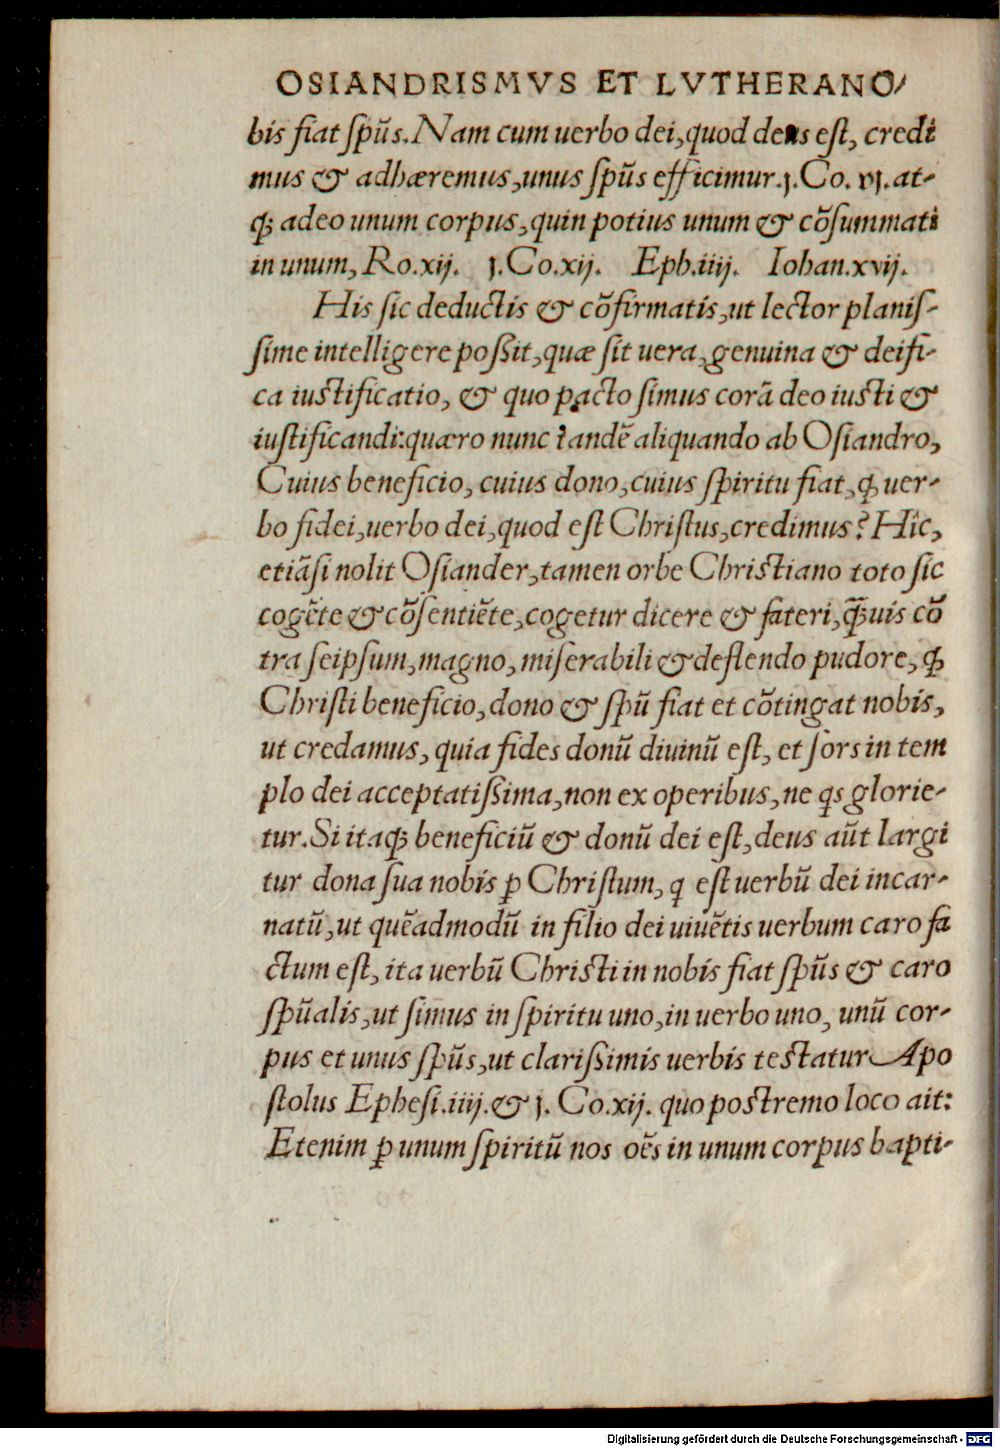 OSIANDRISMVS ET LVTHERANO/
bis fiat spũs. Nam cum uerbo dei, quod deus est, credi
mus & adhæremus, unus spũs efficimur. j. Co. vj. at-
q; adeo unum corpus, quin potius unum & cõsummati
in unum, Ro.xij. j.Co.xij. Eph.iiij. Iohan.xvij.
His sic deductis & cõfirmatis, ut lector planis-
sime intelligere possit, quæ sit uera, genuina & deifi-
ca iustificatio, & quo pacto simus corã deo iusti &
iustificandi: quæro nunc tandẽ aliquando ab Osiandro,
Cuius beneficio, cuius dono, cuius spiritu fiat, ꝙ uer-
bo fidei, uerbo dei, quod est Christus, credimus? Hîc,
etiãsi nolit Osiander, tamen orbe Christiano toto sic
cogẽte & cõsentiẽte, cogetur dicere & fateri, ꝙ̃uis cõ
tra seipsum, magno, miserabili & deflendo pudore, ꝙ
Christi beneficio, dono & spũ fiat et cõtingat nobis,
ut credamus, quia fides donũ diuinũ est, et sors in tem
plo dei acceptatissima, non ex operibus, ne qs glorie-
tur. Si itaq; beneficiũ & donũ dei est, deus aũt largi
tur dona sua nobis ꝑ Christum, q est uerbũ dei incar-
natũ, ut quẽadmodũ in filio dei uiuẽtis uerbum caro fa
ctum est, ita uerbũ Christi in nobis fiat spũs & caro
spũalis, ut simus in spiritu uno, in uerbo uno, unũ cor-
pus et unus spũs, ut clarissimis uerbis testatur Apo
stolus Ephesi.iiij. & j. Co.xij. quo postremo loco ait:
Etenim ꝑ unum spiritũ nos oẽs in unum corpus bapti-
Digitalisierung gefördert durch die Deutsche Forschungsgemeinschaft - DFG